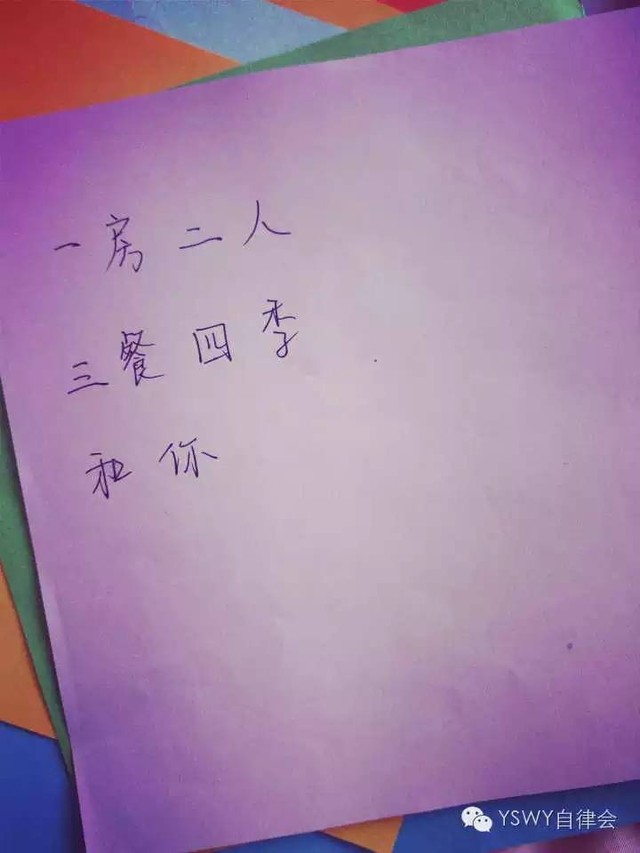 一房二人
三餐四季
和你
YSWY自律会